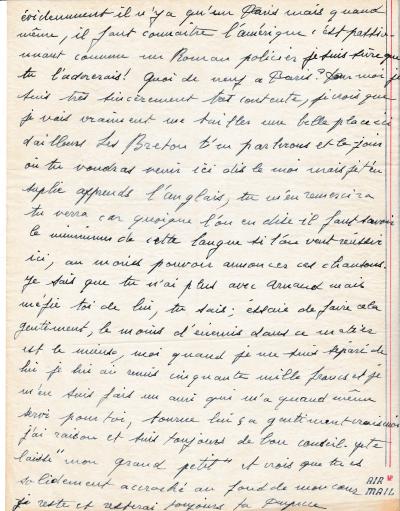 évidemment il n'ya qu'un Paris mais quand
même, il faut connaître l'amérique c'est passio-
nnant comme un Roman policier je suis sûre que
tu l'adorerais! Quoi de neuf a Paris? Pour moi je
suis très sincèrement très contente, je crois que
je vais vraiment me tailler une belle place ici
d'ailleurs Les Breton t'en parlerons et le jour
où tu voudras venir ici dis le moi mais je t'en
suplie apprends l'anglais, tu m'en remerciera
tu verra car quoique l'on en dise il faut savoir
le minimum de cette langue si l'on veut réussir
ici, au moins pouvoir annoncer ces chansons.
Je sais que tu n'ai plus avec Arnaud mais
méfie toi de lui, tu sais; éssaie de faire cela
gentiment, le moins d'énemis dans ce métier
est le mieux, moi quand je me suis séparé de
lui je lui ai remis cinquante mille francs et je
m'en suis fais un ami qui m'a quand même
servi pour toi, tourne lui ça gentiment crois moi
j'ai raison et suis toujours de bon conseil. je te
laisse "mon grand petit" et crois que tu es
solidement accroché au fond de mon cœur
AIR MAIL
je reste et resterai toujours ta